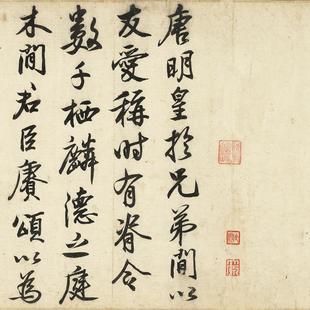 唐明皇於兄弟間以
友愛稱時有脊令
數千栖麟德之庭
木間君臣賡頌以為